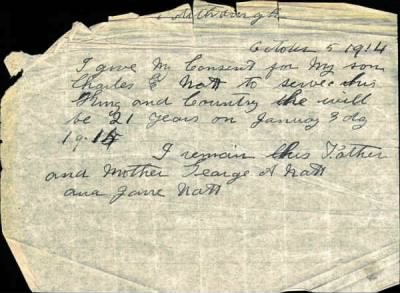 October 5 1914
I give My Consent for My son
Charles E Natt to serve his
King and Country he will
be 21 years on January 3
191
I remain his Father
and Mother George A Natt
and Jane Natt